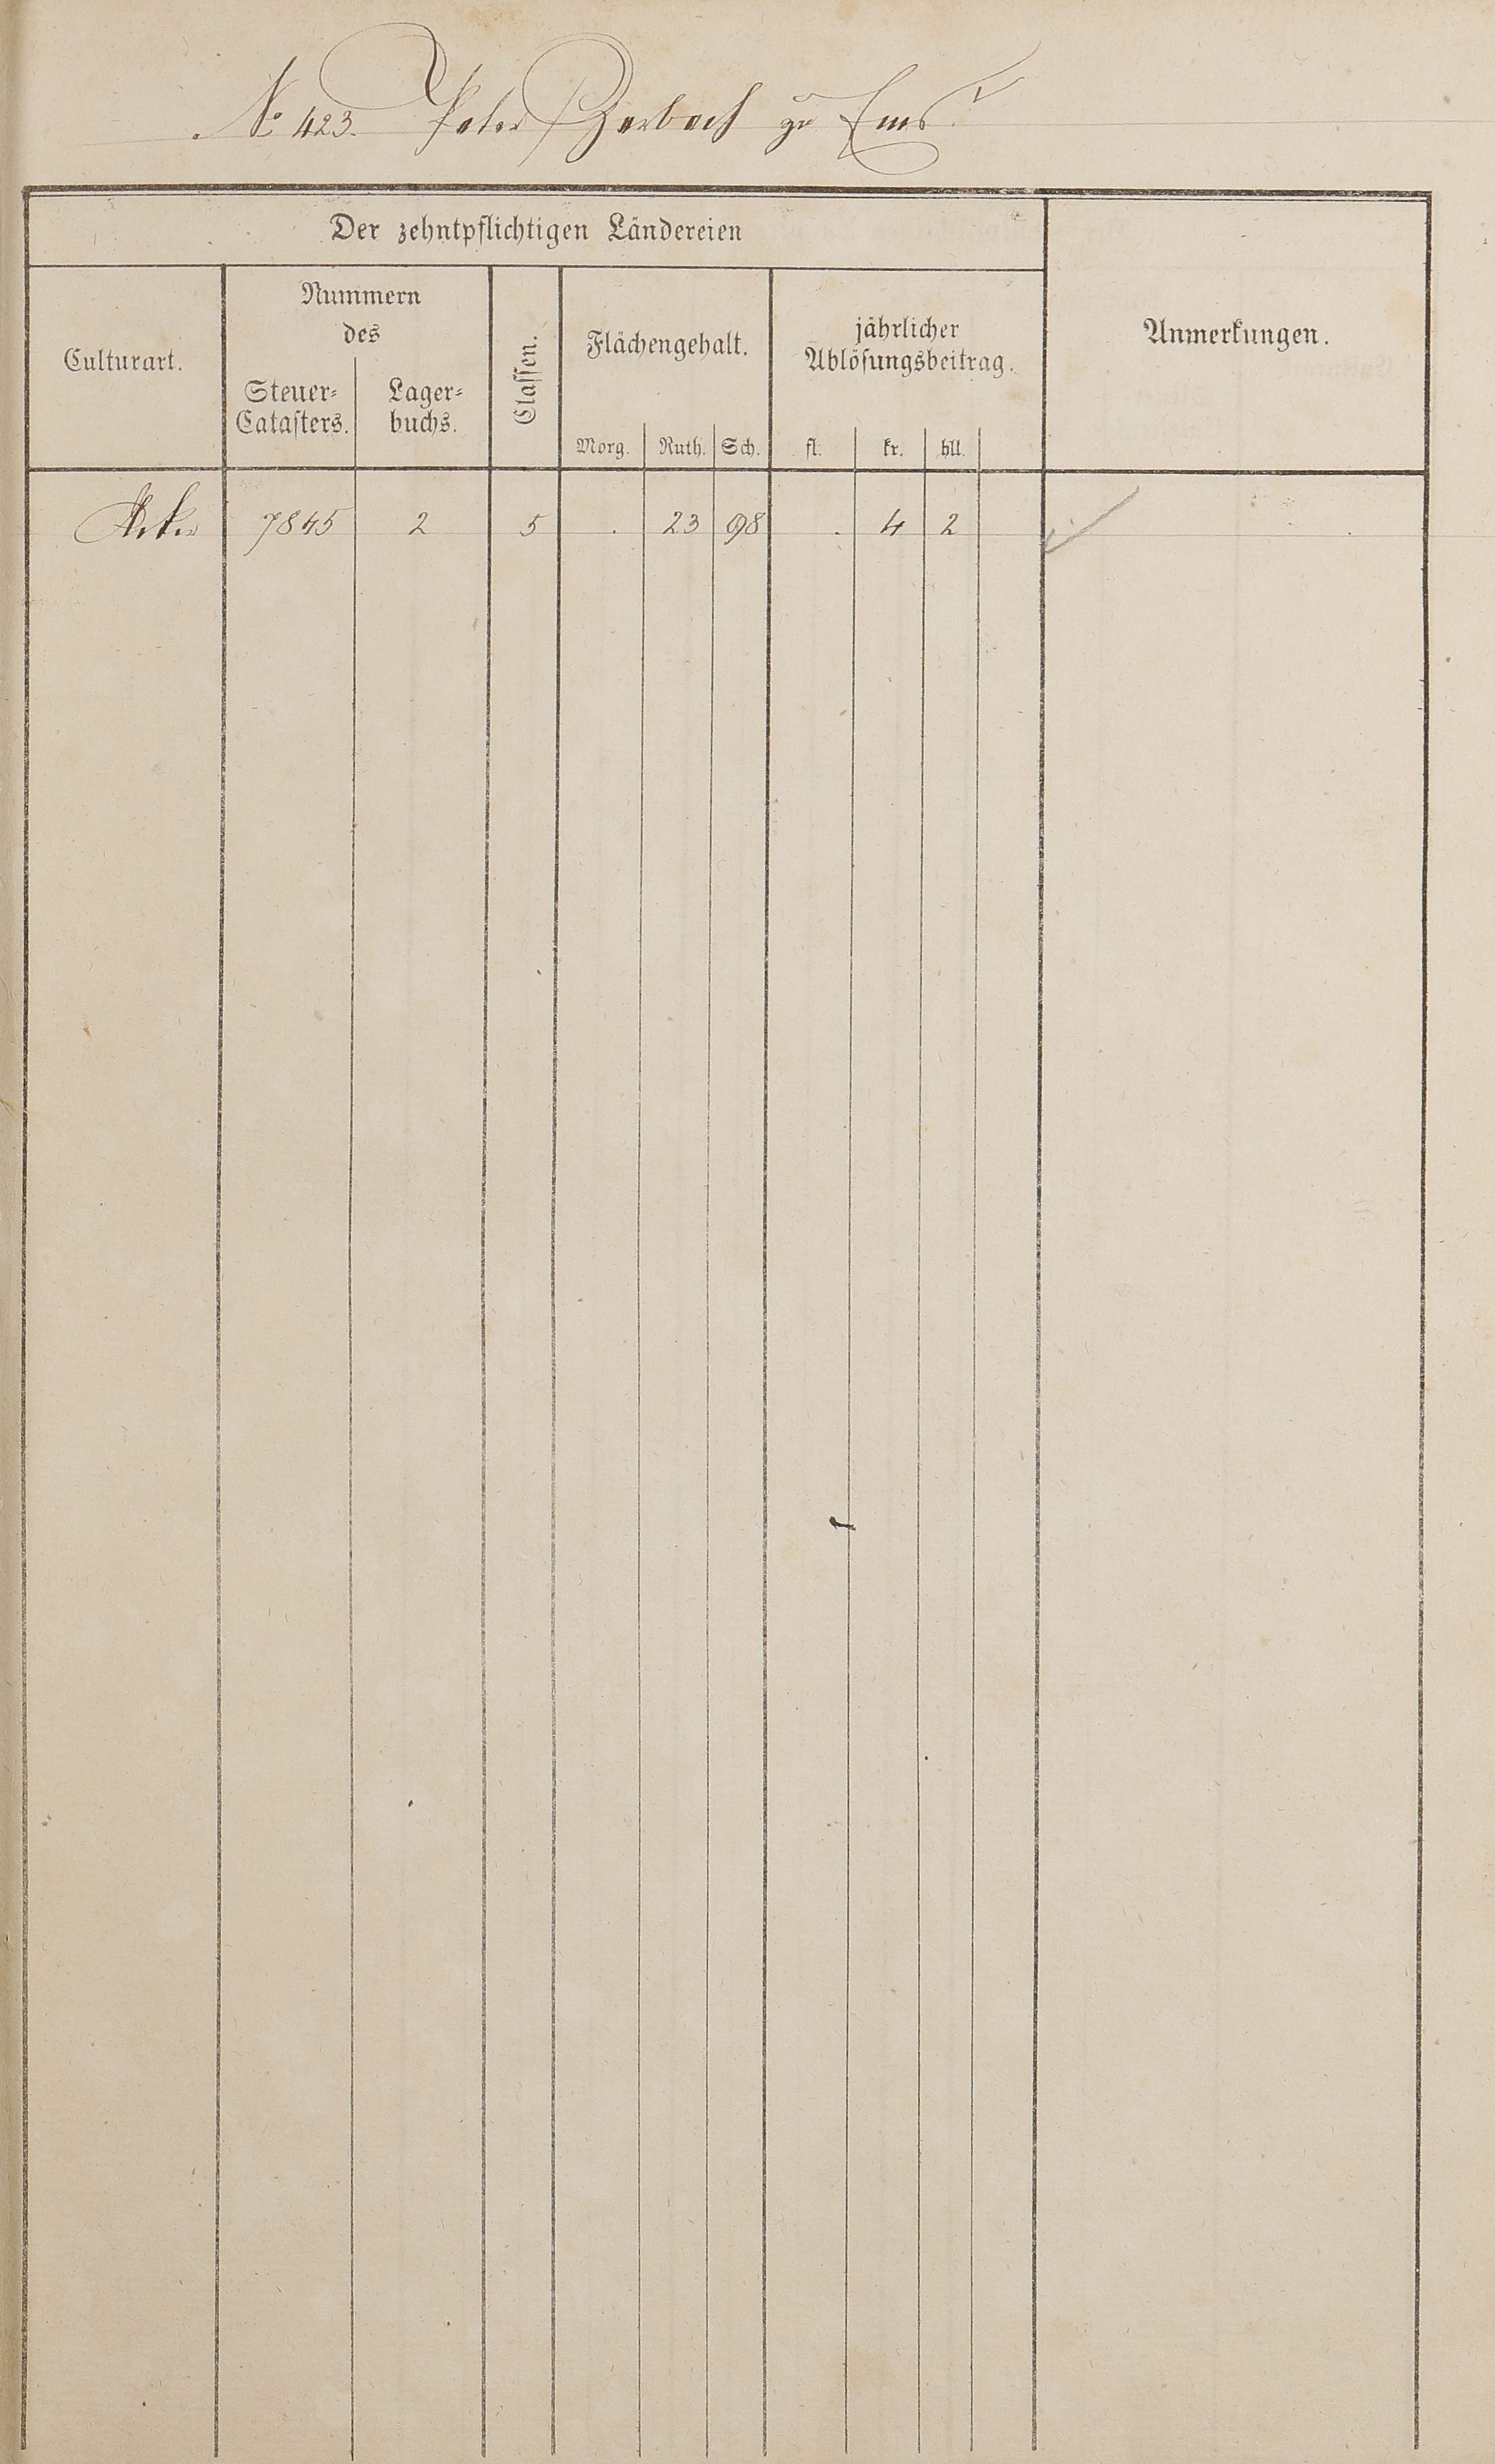 No 423. Peter Zerbach zu Ems
Der zehntpflichtigen Ländereien
Culturart.
Nummern
des
Steuer-
Catasters.
Lager-
buchs.
Classen.
Flächengehalt.
Morg. Ruth. Sch.
jährlicher
Ablösungsbeitrag.
fl. kr. hll.
Anmerkungen.
Acker 7845 2 5 . 23 98 . 4 2